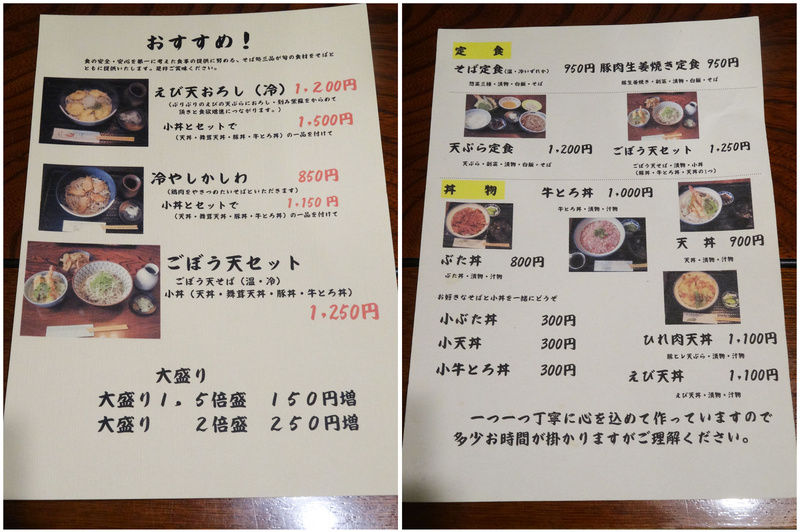 おすすめ！
食の安全・安心を第一に考えた食事の提供に努める、そば処三品が旬の食材をそばと
ともに提供いたします。是非ご賞味ください。
えび天おろし（冷） 1,200円
（ぷりぷりのえびの天ぷらにおろし・刻み紫蘇をからめて
頂きと食欲増進につながります。）
小丼とセットで 1,500円
（天丼・舞茸天丼・豚丼・牛とろ丼）の一品を付けて
冷やしかしわ 850円
（鶏肉をやきつめたいそばといただきます）
小丼とセットで 1,150円
（天丼・舞茸天丼・豚丼・牛とろ丼）の一品を付けて
ごぼう天セット
ごぼう天そば（温・冷）
小丼（天丼・舞茸天丼・豚丼・牛とろ丼）
1,250円
大盛り
大盛り1．5倍盛 150円増
大盛り 2倍盛 250円増
定 食
そば定食（温・冷いずれか） 950円
惣菜三種・漬物・白飯・そば
豚肉生姜焼き定食 950円
豚生姜焼き・副菜・漬物・白飯・そば
天ぷら定食 1,200円
天ぷら・副菜・漬物・白飯・そば
ごぼう天セット 1,250円
ごぼう天そば・漬物・小丼
（豚丼・牛とろ丼・天丼の1つ）
丼 物
牛とろ丼 1,000円
牛とろ丼・漬物・汁物
ぶた丼 800円
ぶた丼・漬物・汁物
天 丼 900円
天丼・漬物・汁物
お好きなそばと小丼を一緒にどうぞ
小ぶた丼 300円
小天丼 300円
小牛とろ丼 300円
ひれ肉天丼 1,100円
豚ヒレ天ぷら・漬物・汁物
えび天丼 1,100円
えび天丼・漬物・汁物
一つ一つ丁寧に心を込めて作っていますので
多少お時間が掛かりますがご理解ください。